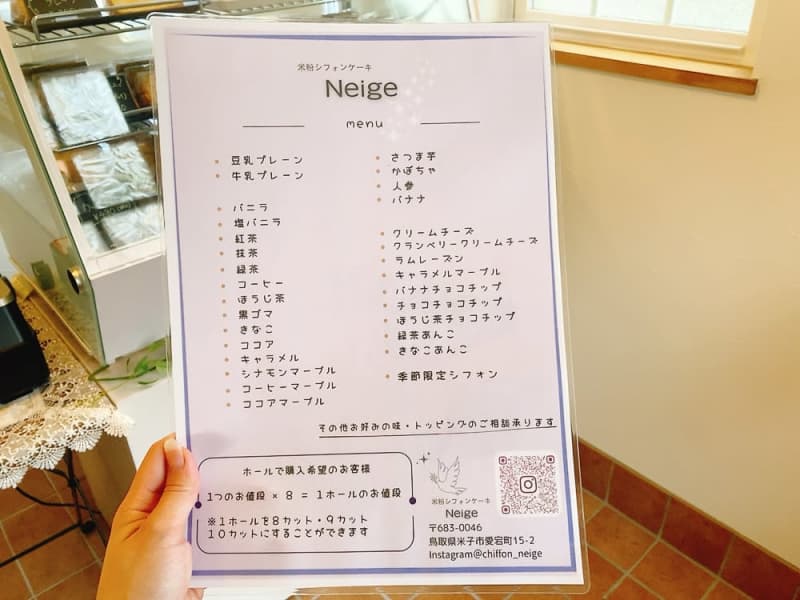 米粉シフォンケーキ
Neige
menu
豆乳プレーン
牛乳プレーン
バニラ
塩バニラ
紅茶
抹茶
緑茶
コーヒー
ほうじ茶
黒ゴマ
きなこ
ココア
キャラメル
シナモンマーブル
コーヒーマーブル
ココアマーブル
さつま芋
かぼちゃ
人参
バナナ
クリームチーズ
クランベリークリームチーズ
ラムレーズン
キャラメルマーブル
バナナチョコチップ
チョコチョコチップ
ほうじ茶チョコチップ
緑茶あんこ
きなこあんこ
季節限定シフォン
その他お好みの味・トッピングのご相談承ります
ホールで購入希望のお客様
1つのお値段 × 8 = 1ホールのお値段
※1ホールを8カット・9カット
10カットにすることができます
米粉シフォンケーキ
Neige
〒683-0046
鳥取県米子市愛宕町15-2
Instagram@chiffon_neige